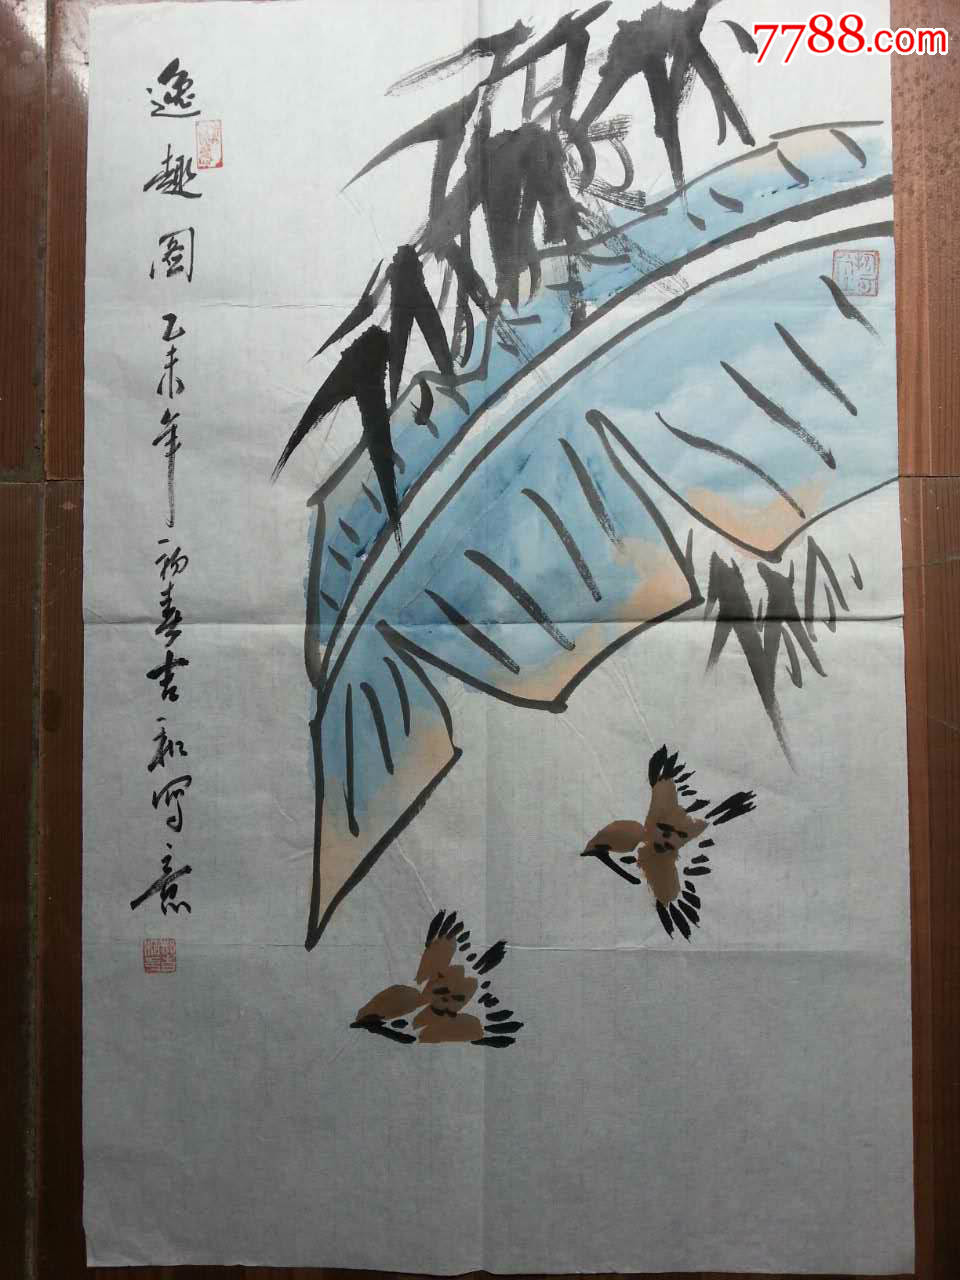 7788.com
逸趣图乙未年初春吉和写意